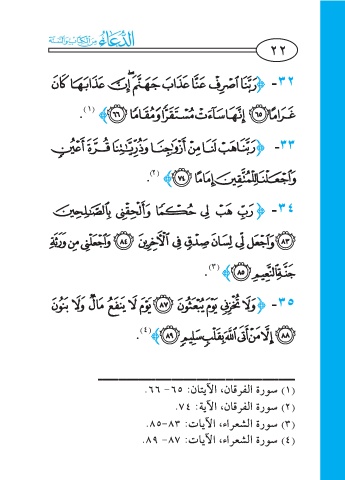 ٢٢ الدُّعَاءُ مِنَ الكِتَابِ وَالسُّنَّة
٣٢- ﴿رَبَّنَا ٱصۡرِفۡ عَنَّا عَذَابَ جَهَنَّمَۖ إِنَّ عَذَابَهَا كَانَ
غَرَامًا ۝٦٥ إِنَّهَا سَآءَتۡ مُسۡتَقَرّٗا وَمُقَامٗا ۝٦٦﴾(١).
٣٣- ﴿رَبَّنَا هَبۡ لَنَا مِنۡ أَزۡوَٰجِنَا وَذُرِّيَّٰتِنَا قُرَّةَ أَعۡيُنٖ
وَٱجۡعَلۡنَا لِلۡمُتَّقِينَ إِمَامًا ۝٧٤﴾(٢).
٣٤- ﴿رَبِّ هَبۡ لِي حُكۡمٗا وَأَلۡحِقۡنِي بِٱلصَّٰلِحِينَ
۝٨٣ وَٱجۡعَل لِّي لِسَانَ صِدۡقٖ فِي ٱلۡأٓخِرِينَ ۝٨٤ وَٱجۡعَلۡنِي مِن وَرَثَةِ
جَنَّةِ ٱلنَّعِيمِ ۝٨٥﴾(٣).
٣٥- ﴿وَلَا تُخۡزِنِي يَوۡمَ يُبۡعَثُونَ ۝٨٧ يَوۡمَ لَا يَنفَعُ مَالٞ وَلَا بَنُونَ
۝٨٨ إِلَّا مَنۡ أَتَى ٱللَّهَ بِقَلۡبٖ سَلِيمٖ ۝٨٩﴾(٤).
(١) سورة الفرقان، الآيتان: ٦٥- ٦٦.
(٢) سورة الفرقان، الآية: ٧٤.
(٣) سورة الشعراء، الآيات: ٨٣-٨٥.
(٤) سورة الشعراء، الآيات: ٨٧- ٨٩.